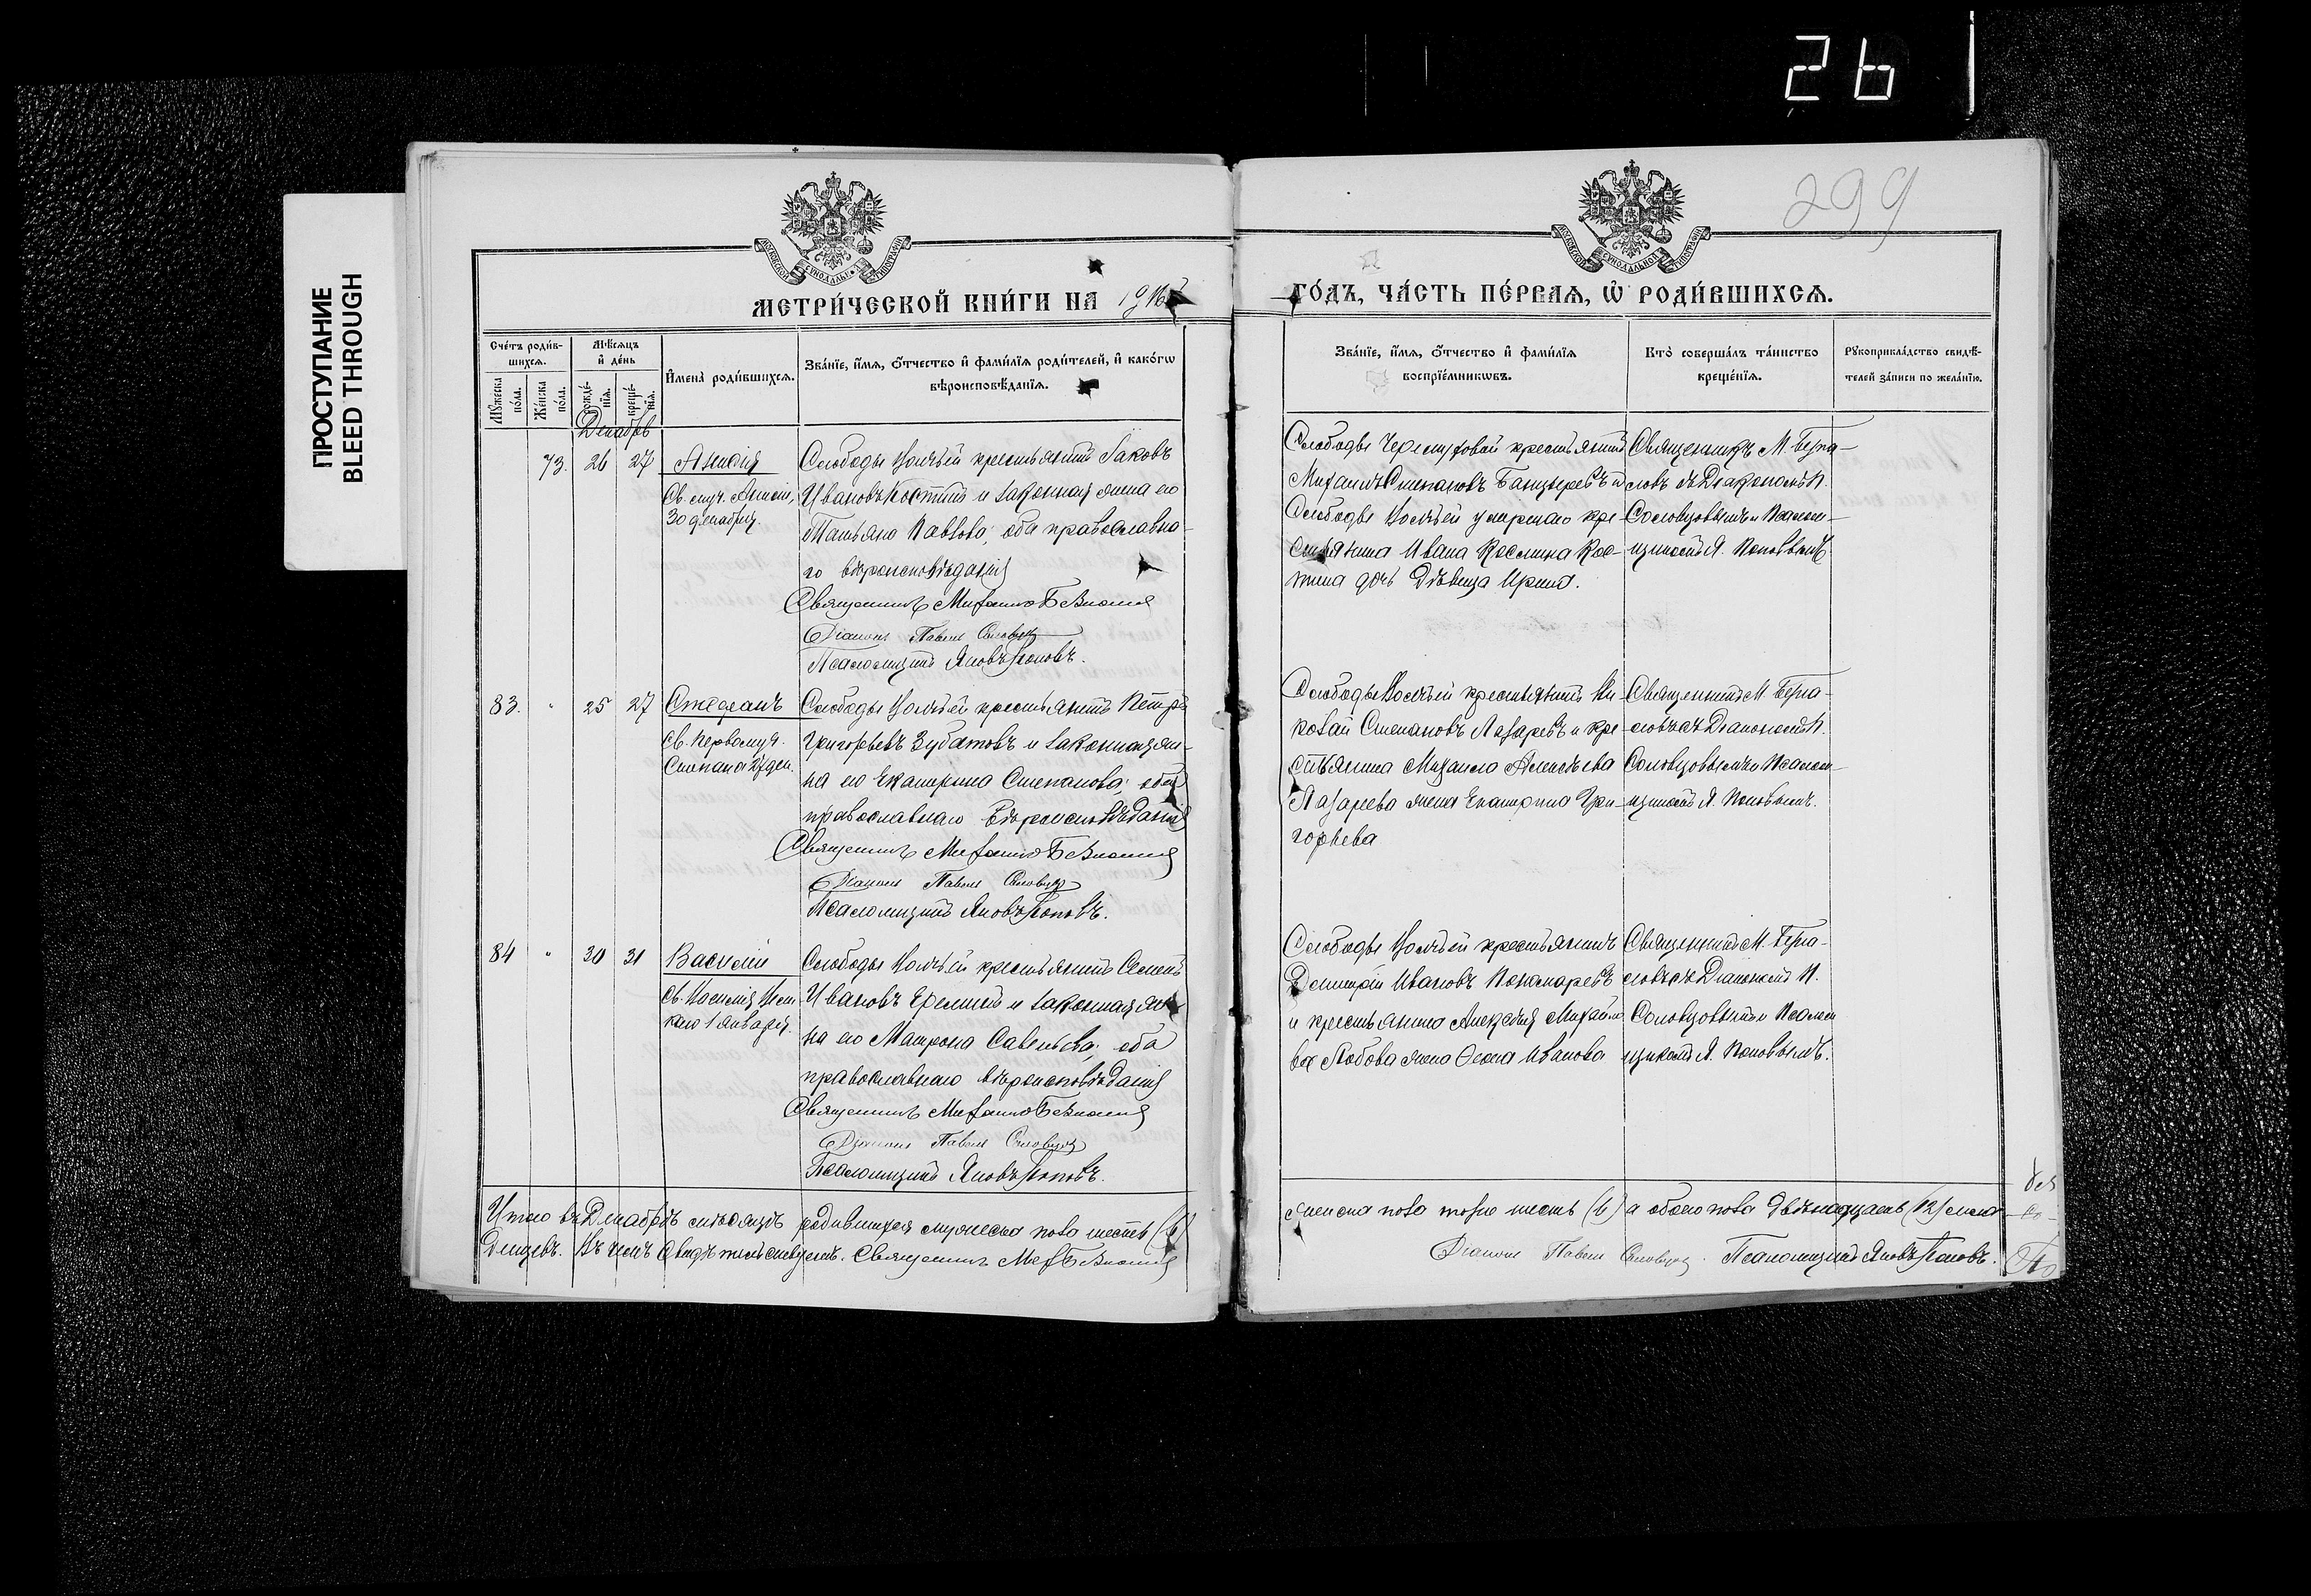 26
ПРОСТУПАНИЕ
BLEED THROUGH
299
МЕТРИ́ЧЕСКОЙ КНИ́ГИ НА 1916
ГО́ДЪ, ЧА́СТЬ ПЕ́РВАЯ, Ѡ҆ РОДИ́ВШИХСЯ.
Сче́тъ роди́в-
шихся.
Мꙋ́жеска
по́ла.
Же́нска
по́ла.
Мѣ́сяцъ
и҆ де́нь
рожде́-
нїя.
креще́-
нїя.
И҆мена̀ роди́вшихся.
Зва́нїе, и҆́мя, ѻ҆́тчество и҆ фами́лїя роди́телей, и҆ како́гѡ
вѣроисповѣ́данїя.
Зва́нїе, и҆́мя, ѻ҆́тчество и҆ фами́лїя
воспрїе́мникѡвъ.
Кто̀ соверша́лъ та́инство
креще́нїя.
Рꙋкоприкла́дство свидѣ́-
телей за́писи по жела́нїю.
Декабрь
73. 26 27 Анисія
Св. муч. Анисіи,
30 декабря.
Слободы крестьянинъ Іаковъ
Ивановъ Костинъ и законная жена его
Татьяна Павлова, оба православна-
го вѣроисповѣданія
Священникъ Михаилъ
Діаконъ Павелъ Соловцов
Псаломщикъ Яковъ Поповъ.
Слободы крестьянинъ
Михаилъ Степановъ и
Слободы умершаго кре-
стьянина Ивана Космина Кос-
тина дочь дѣвица Ирина.
Священникъ М.
съ Діакономъ П.
Соловцовымъ и Псалом-
щикомъ Я. Поповымъ
83. " 25 27 Стефанъ
Св. первомуч.
Стефана 27 дек.
Слободы крестьянинъ Петръ
Григорьевъ Зубатовъ и законная же-
на его Екатерина Степанова, оба
православнаго вѣроисповѣданія
Священникъ Михаилъ
Діаконъ Павелъ Соловцов
Псаломщикъ Яковъ Поповъ.
Слободы крестьянинъ Ни-
колай Степановъ Лазаревъ и кре-
стьянина Михаила Алексѣева
Лазарева жена Екатерина Гри-
горьева
Священникъ М.
съ Діакономъ П.
Соловцовымъ и Псалом-
щикомъ Я. Поповымъ.
84 " 30 31 Василій
Св. Василія Вели
каго 1 января.
Слободы крестьянинъ Семенъ
Ивановъ Ереминъ и законная же-
на его Матрона Савельева, оба
православнаго вѣроисповѣданія
Священникъ Михаилъ
Діаконъ Павелъ Соловцов
Псаломщикъ Яковъ Поповъ.
Слободы крестьянинъ
Димитрій Ивановъ Пономаревъ
и крестьянина Алексѣя Михайло
ва жена Ивanова
Священникъ М.
съ Діакономъ П.
Соловцовымъ и Псалом
щикомъ Я. Поповымъ.
Итого въ Декабрѣ мѣсяцѣ родившихся мужеска пола шесть (6)
женска пола тоже шесть (6) а обоего пола двѣнадцать (12) мла-
денцевъ. Въ чемъ и свидѣтельствуемъ. Священникъ
Діаконъ Павелъ Соловцов. Псаломщикъ Яковъ Поповъ.